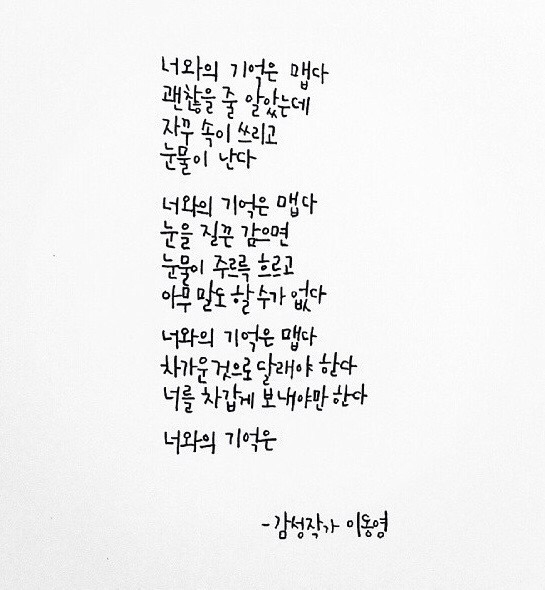 너와의 기억은 맵다
괜찮을 줄 알았는데
자꾸 속이 쓰리고
눈물이 난다
너와의 기억은 맵다
눈을 질끈 감으면
눈물이 주르륵 흐르고
아무 말도 할 수가 없다
너와의 기억은 맵다
차가운 것으로 달래야 한다
너를 차갑게 보내야만 한다
너와의 기억은
-감성작가 이동영